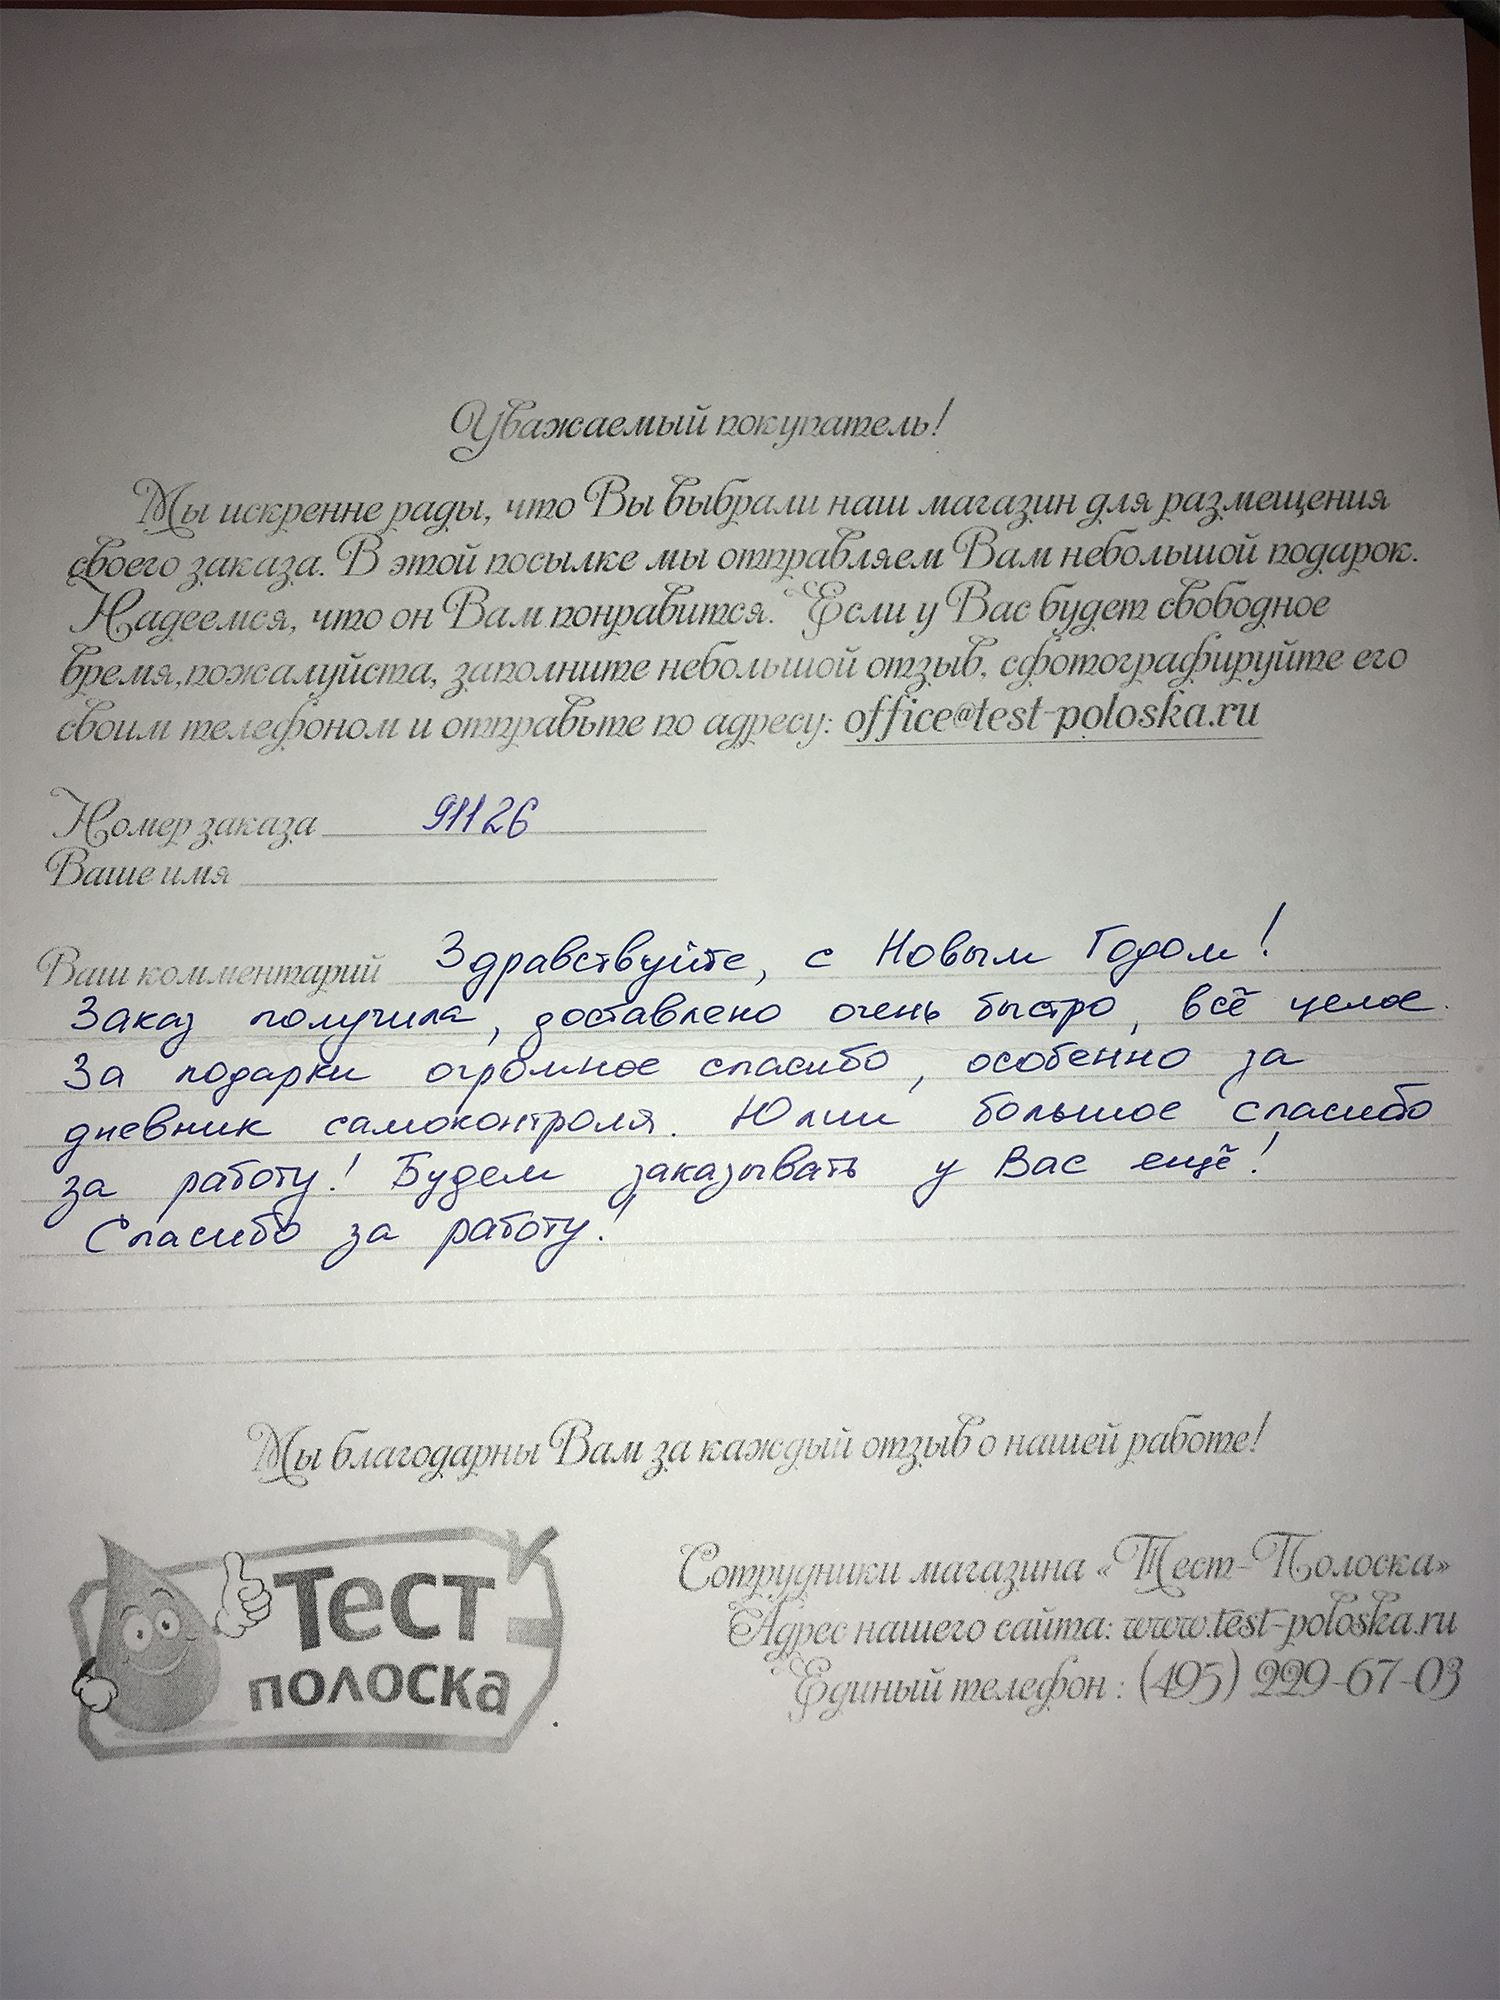 Уважаемый покупатель!
Мы искренне рады, что Вы выбрали наш магазин для размещения
своего заказа. В этой посылке мы отправляем Вам небольшой подарок.
Надеемся, что он Вам понравится. Если у Вас будет свободное
время,пожалуйста, заполните небольшой отзыв, сфотографируйте его
своим телефоном и отправьте по адресу: office@test-poloska.ru
Номер заказа 91126
Ваше имя
Ваш комментарий Здравствуйте, с Новым Годом!
Заказ получила, доставлено очень быстро, всё целое.
За подарки огромное спасибо, особенно за
дневник самоконтроля. Юлии большое спасибо
за работу! Будем заказывать у Вас ещё!
Спасибо за работу!
Мы благодарны Вам за каждый отзыв о нашей работе!
Тест
полоска
Сотрудники магазина «Тест-Полоска»
Адрес нашего сайта: www.test-poloska.ru
Единый телефон : (495) 229-67-03